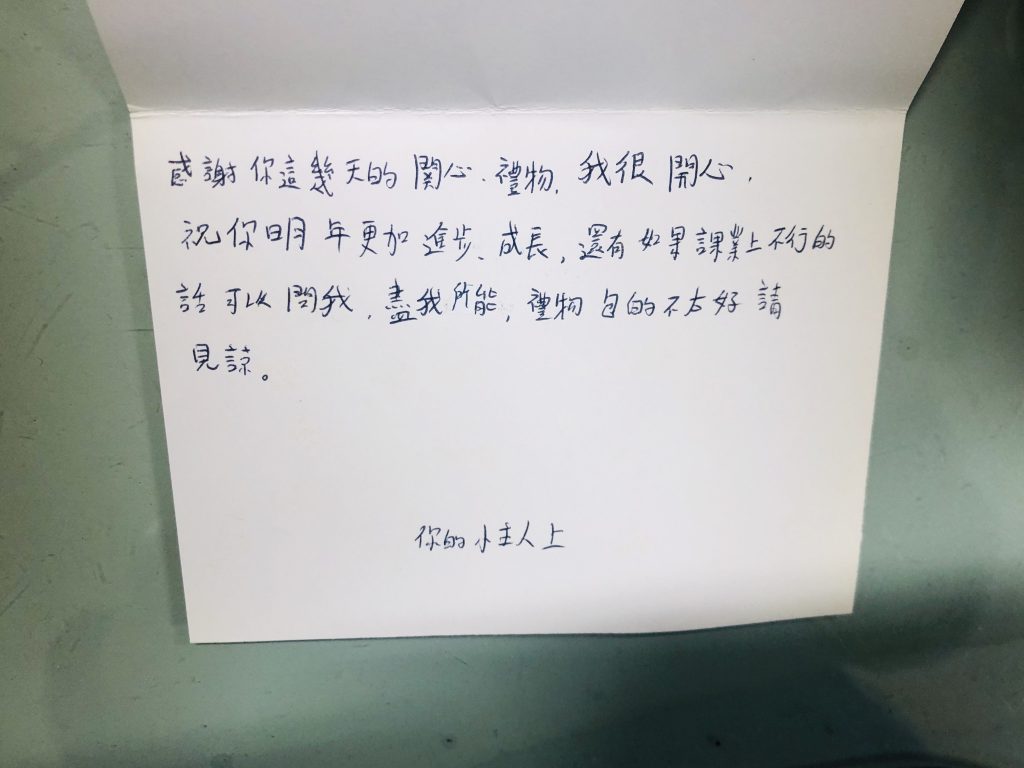 感謝你這幾天的關心、禮物，我很開心，
祝你明年更加進步、成長，還有如果課業上不行的
話可以問我，盡我所能，禮物包的不太好請
見諒。
你的小主人上